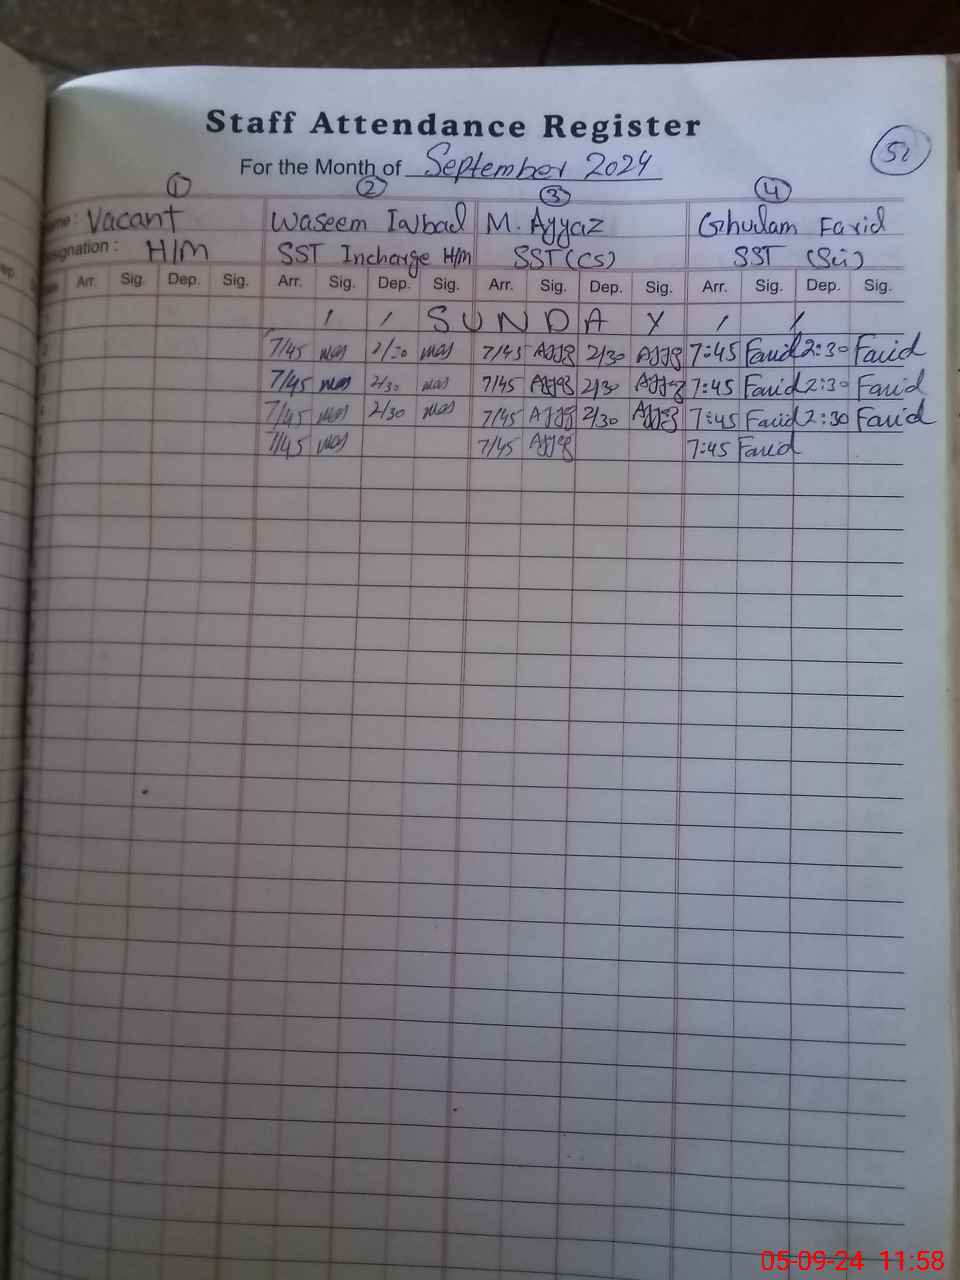 Staff Attendance Register
For the Month of September 2024
52
1 2 3 4
Name: Vacant Waseem Iqbal M. Ayyaz Ghulam Farid
Designation: H/M SST Incharge H/M SST (CS) SST (Sci)
Arr. Sig. Dep. Sig. Arr. Sig. Dep. Sig. Arr. Sig. Dep. Sig. Arr. Sig. Dep. Sig.
/ / S U N D A Y / /
7/45 2/30 7/45 2/30 7:45 Farid 2:30 Farid
7/45 2/30 7/45 2/30 7:45 Farid 2:30 Farid
7/45 2/30 7/45 2/30 7:45 Farid 2:30 Farid
7/45 7/45 7:45 Farid
05-09-24 11:58